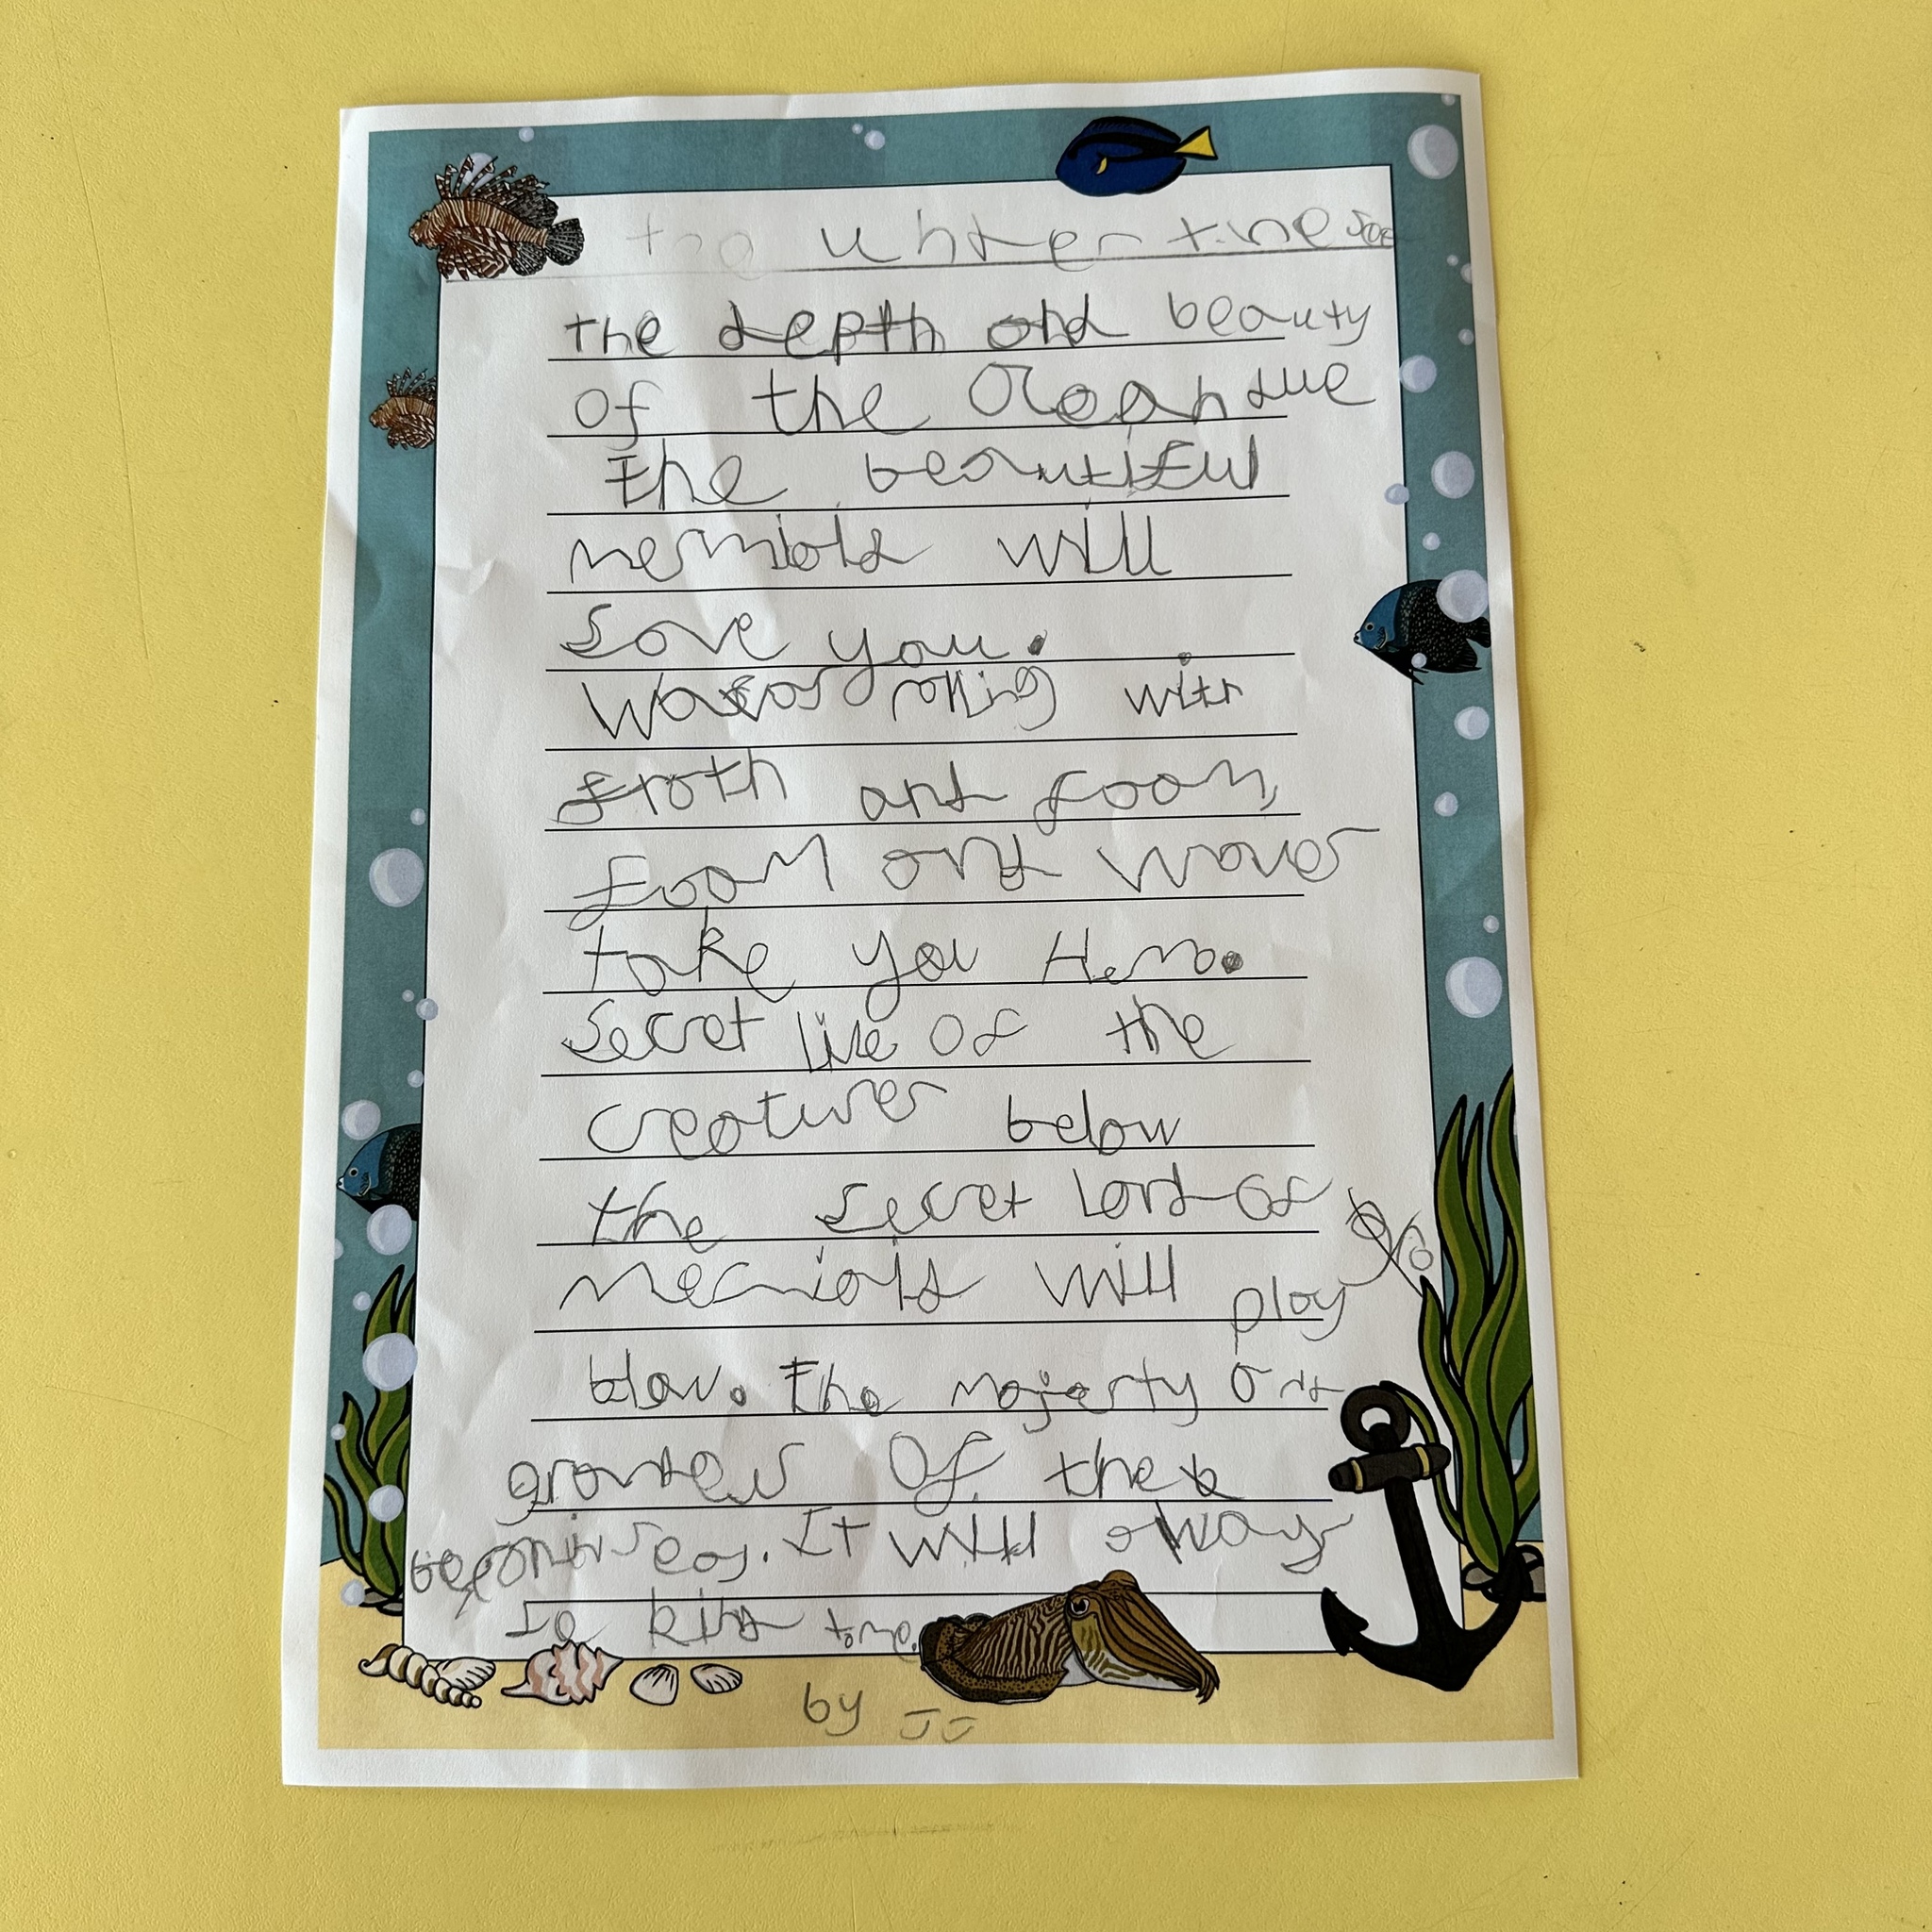 the under the sea
the depth and beauty
of the Ocean due
the beautiful
mermiald will
Save you.
waves rolling with
froth and foam,
foam and waves
take you Home.
Secret live of the
creatures below
the secret Lord of
mermiald will play
blow. The majesty and
of the
sea. It will always
be kind to me.
by JJ